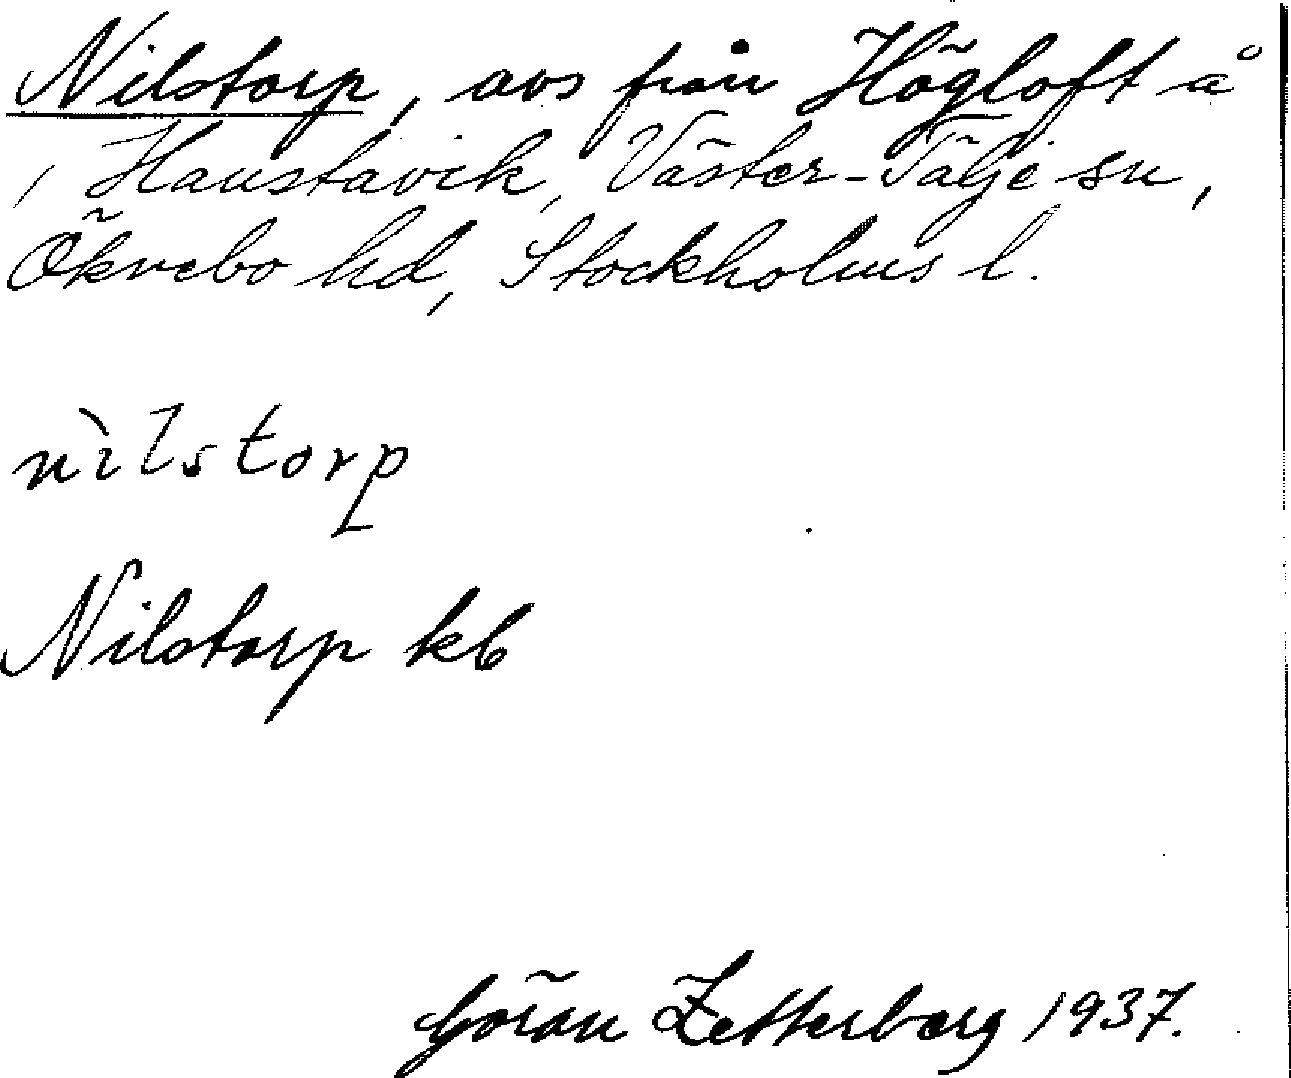 Nilstorp, avs från Högloft å
, Haustavik, Väster-Tälje sn,
Öknebo hd, Stockholms l.
nìlstorp
Nilstorp kb
Göran Zetterberg 1937.